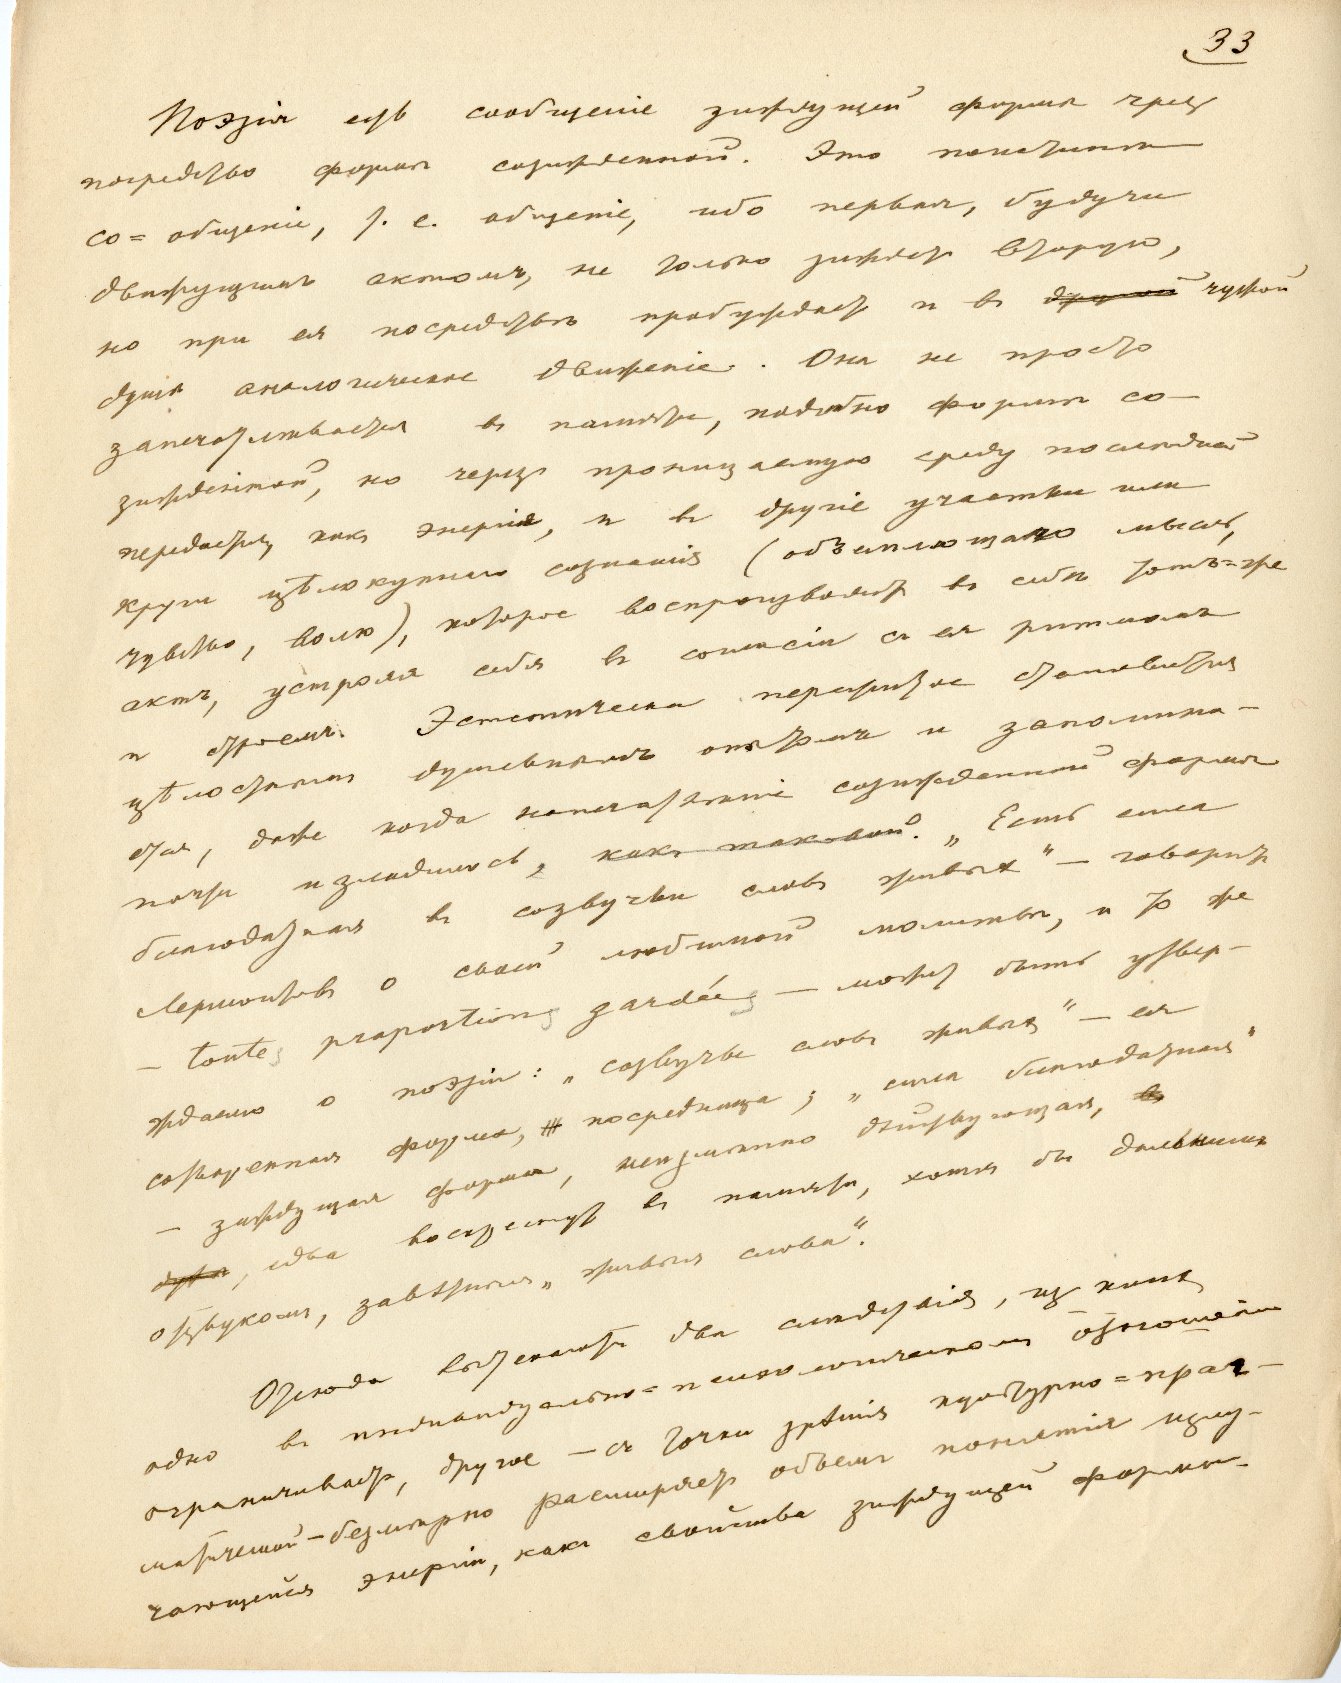 33
Поэзія есть сообщеніе зиждущей формы чрезъ
посредство формы созижденной. Это поистинѣ
со=общеніе, т. е. общеніе, ибо первая, будучи
движущимъ актомъ, не только зиждетъ вторую,
но при ея посредствѣ пробуждаетъ и въ другой чужой
душѣ аналогическое движеніе. Она не просто
запечатлѣвается въ памяти, подобно формѣ со-
зижденной, но черезъ проницаемую среду послѣдней
передается, какъ энергія, и въ другіе участки или
круги цѣлокупнаго сознанія (объемлющаго мысль,
чувство, волю), которое воспроизводитъ въ себѣ тотъ=же
актъ, устрояя себя въ согласіи съ ея ритмомъ
и строемъ. Эстетически пережитое становится
цѣлостнымъ душевнымъ опытомъ и запомина-
ется, даже когда напечатлѣніе созижденной формы
почти изгладилось, какъ таковой. „Есть сила
благодатная въ созвучьи словъ живыхъ“ – говоритъ
Лермонтовъ о своей любимой молитвѣ, и то же
– toutes proportions gardées – можетъ быть утвер-
ждаемо о поэзіи: „созвучье словъ живыхъ“ – ея
сотворенная форма, посредница; „сила благодатная“
– зиждущая форма, неизмѣнно дѣйствующая, въ
духѣ, едва воскреснутъ въ памяти, хотя бы дальнимъ
отзвукомъ, завѣтныя „живыя слова“.
Отсюда вытекаютъ два слѣдствія, изъ коихъ
одно въ индивидуально=психологическомъ отношеніи
ограничиваетъ, другое – съ точки зрѣнія культурно=праг-
матической – безмѣрно расширяетъ объемъ понятія излу-
чающейся энергіи, какъ свойства зиждущей формы.